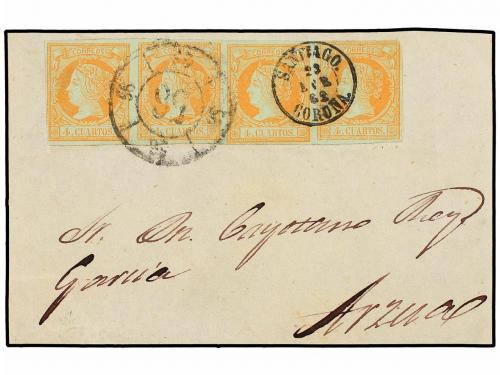 CORREOS CORREOS CORREOS
4 CUARTOS. 4 CUARTOS. 4 CUARTOS. 4 CUARTOS.
56
SANTIAGO.
23
62
CORUÑA.
Sr. Dn. Cayetano Rey
García
Arzua